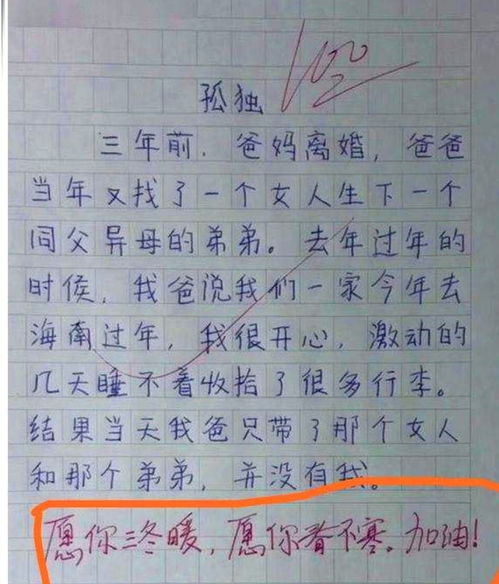 100
孤独
三年前，爸妈离婚，爸爸
当年又找了一个女人生下一个
同父异母的弟弟。去年过年的
时侯，我爸说我们一家今年去
海南过年，我很开心，激动的
几天睡不着收拾了很多行李。
结果当天我爸只带了那个女人
和那个弟弟，并没有我。
愿你三冬暖，愿你春不寒。加油！